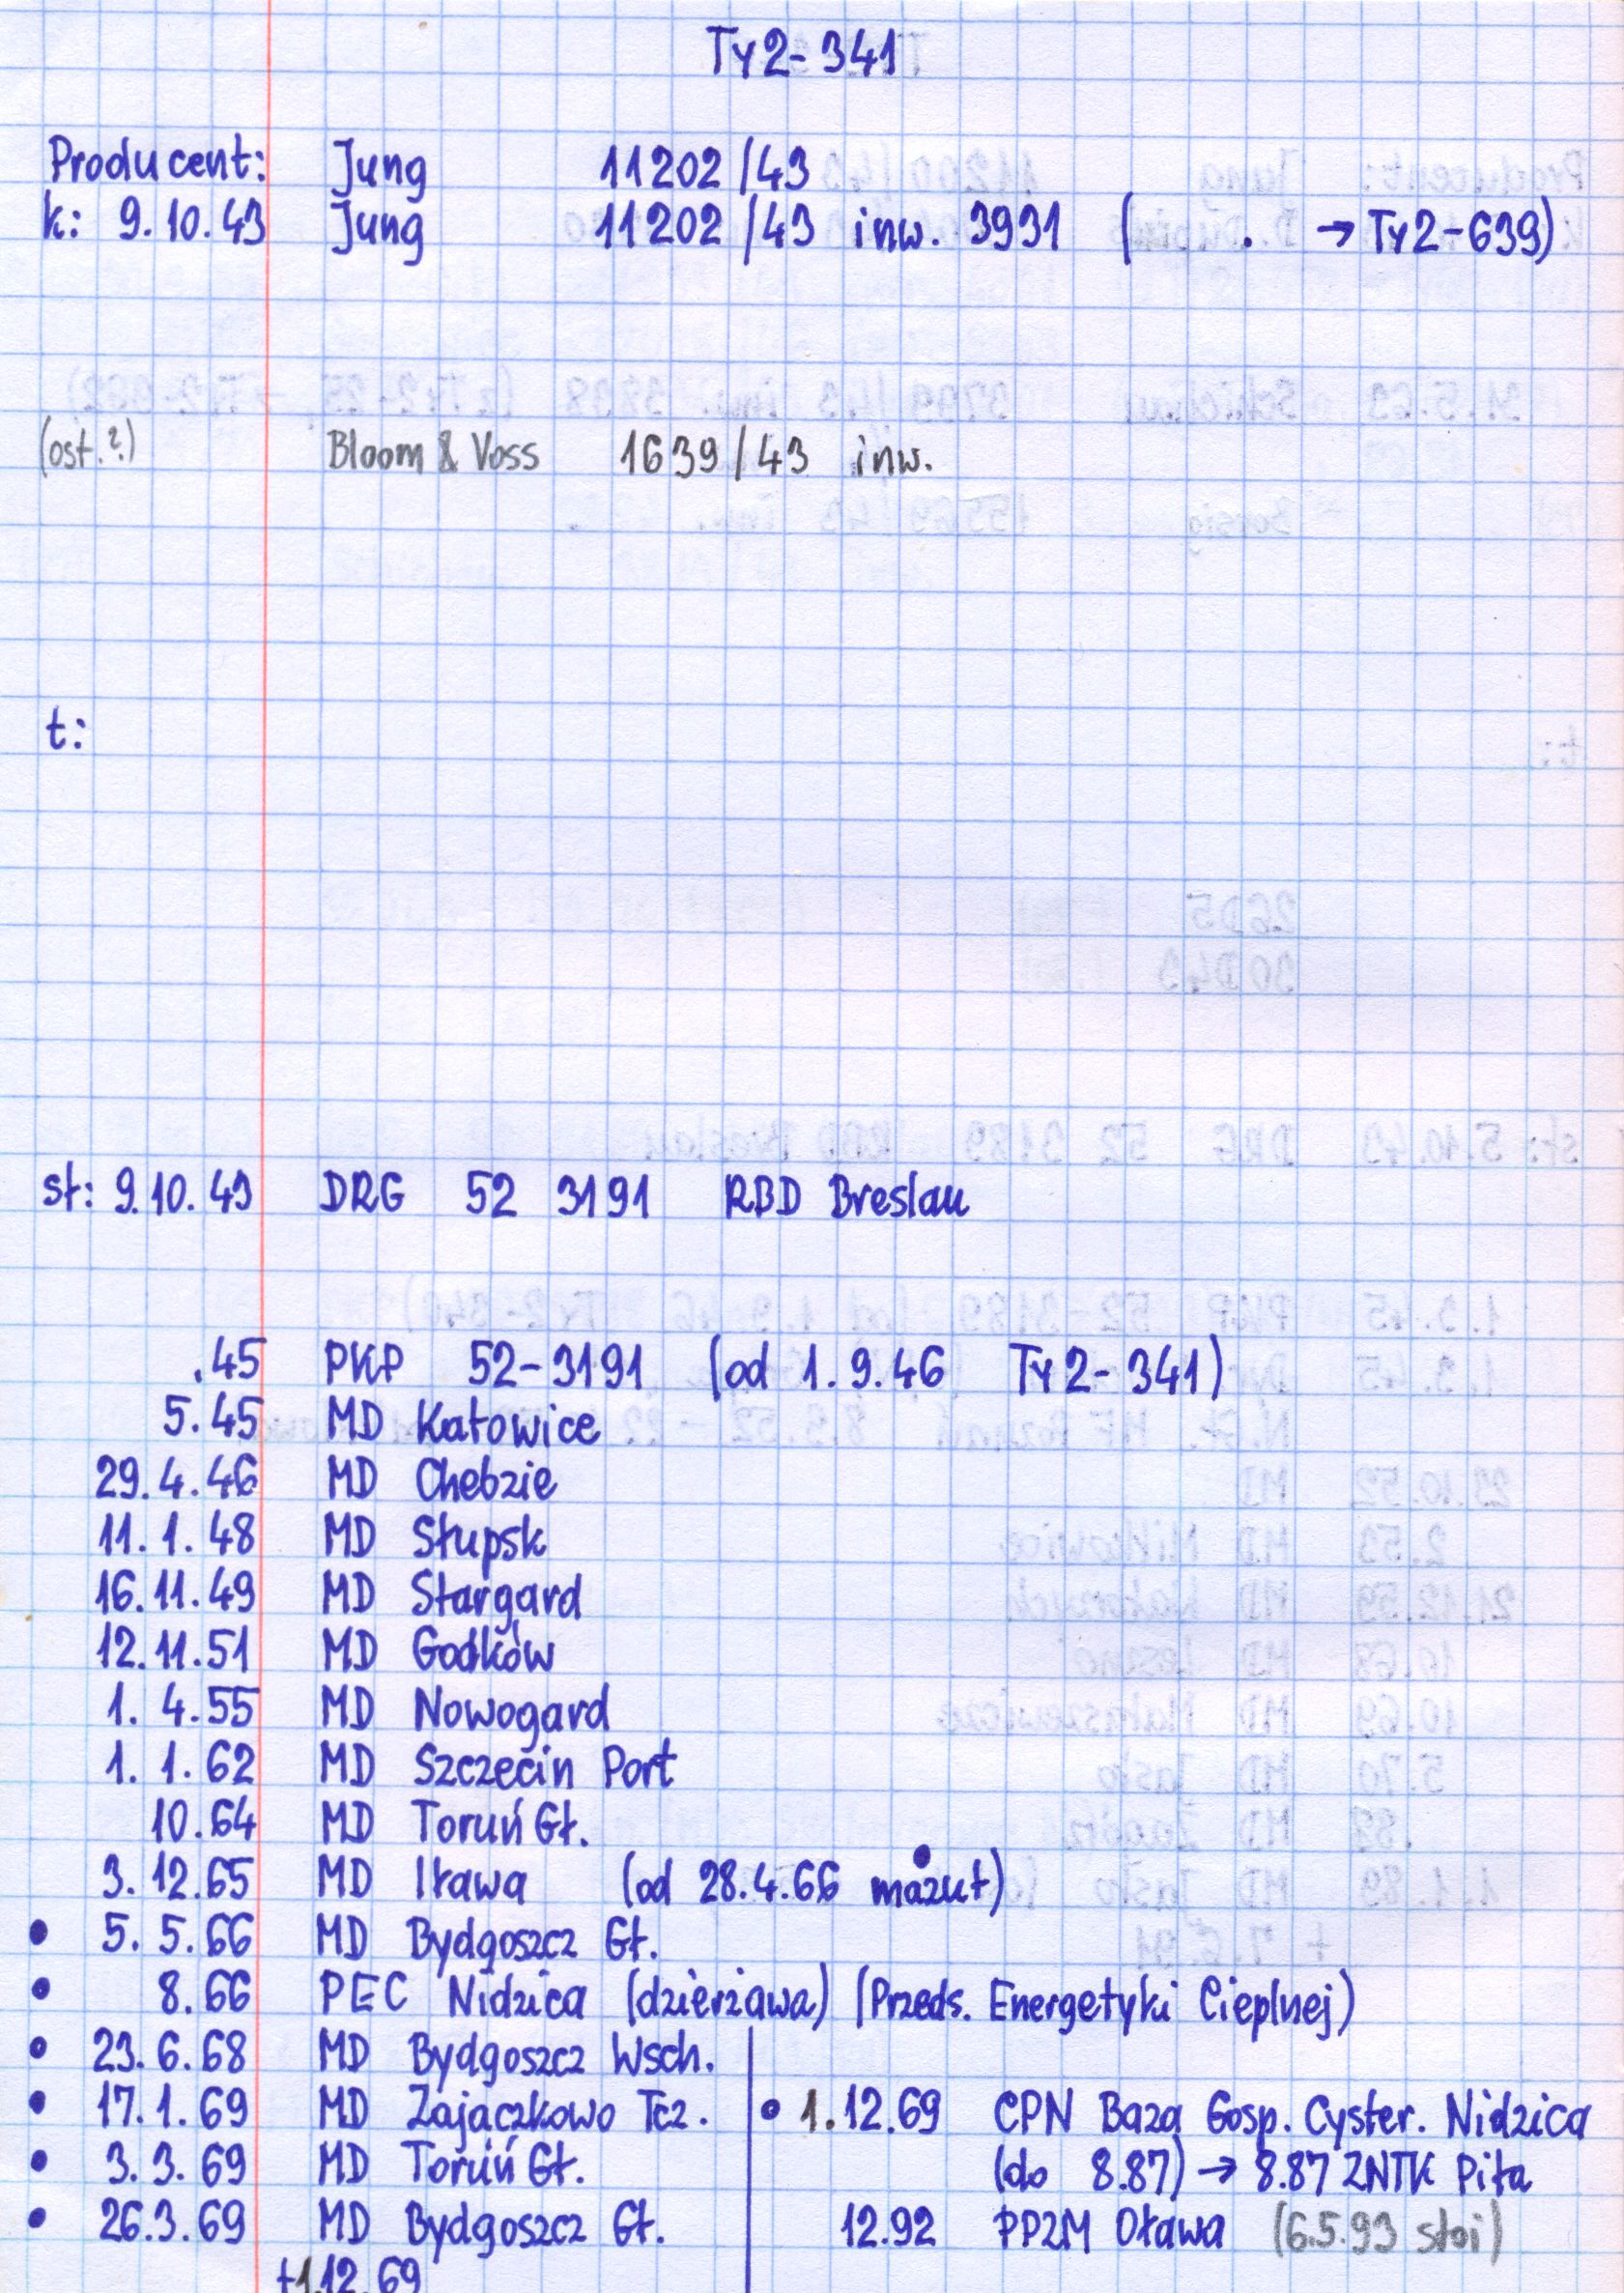 Ty2-341
Producent: Jung 11202/43
k: 9.10.43 Jung 11202/43 inw. 3931 ( . → Ty2-639)
(ost.?) Bloom & Voss 1639/43 inw.
t:
st: 9.10.43 DRG 52 3191 RBD Breslau
.45 PKP 52-3191 (od 1.9.46 Ty2-341)
5.45 MD Katowice
29.4.46 MD Chebzie
11.1.48 MD Słupsk
16.11.49 MD Stargard
12.11.51 MD Godków
1.4.55 MD Nowogard
1.1.62 MD Szczecin Port
10.64 MD Toruń Gł.
3.12.65 MD Iława (od 28.4.66 mazut)
• 5.5.66 MD Bydgoszcz Gł.
• 8.66 PEC Nidzica (dzierżawa) (Przeds. Energetyki Cieplnej)
• 23.6.68 MD Bydgoszcz Wsch.
• 17.1.69 MD Zajączkowo Tcz.
• 3.3.69 MD Toruń Gł.
• 26.3.69 MD Bydgoszcz Gł.
+1.12.69
• 1.12.69 CPN Baza Gosp. Cyster. Nidzica
(do 8.87) → 8.87 ZNTK Piła
12.92 PPZM Oława (6.5.93 stoi)